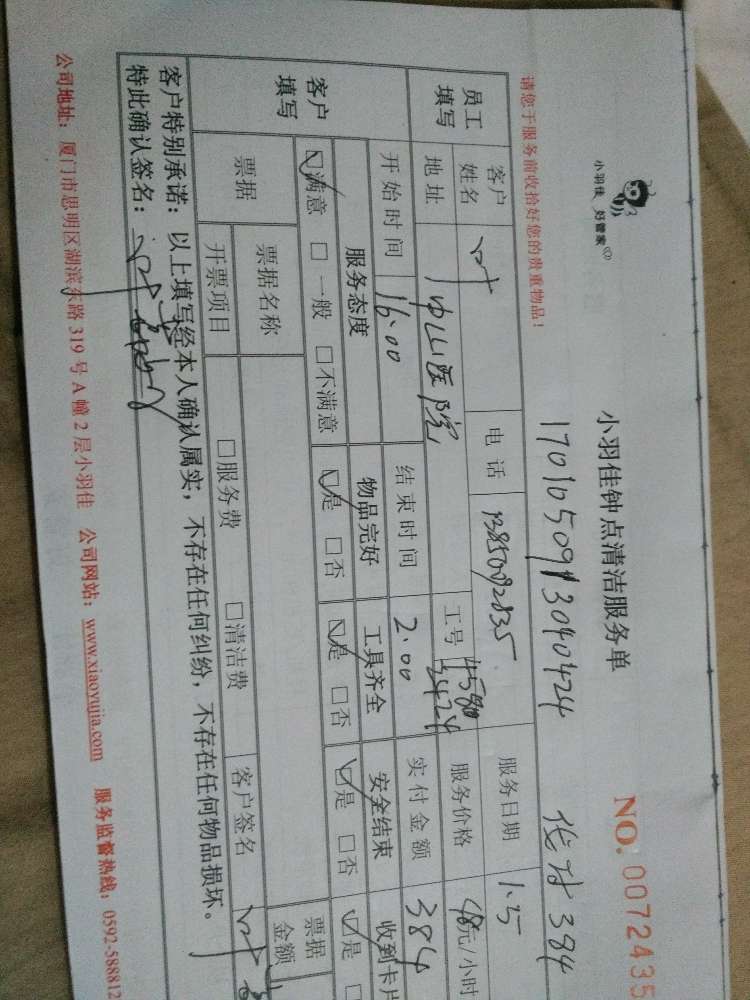 小羽佳 好管家
小羽佳钟点清洁服务单
NO. 0072435
请您于服务前收拾好您的贵重物品!
员工填写
客户姓名 叶 电话 服务日期 1.5
地址 中山医院 工号 服务价格 48元/小时
开始时间 16.00 结束时间 2.00 实付金额 384
客户填写
服务态度 物品完好 工具齐全 安全结束 收到卡片
☑满意 □一般 □不满意 ☑是 □否 ☑是 □否 ☑是 □否 ☑是
票据 票据名称 票据金额
开票项目 □服务费 □清洁费 客户签名 叶
客户特别承诺:以上填写经本人确认属实,不存在任何纠纷,不存在任何物品损坏。
特此确认签名:叶
公司地址:厦门市思明区湖滨东路 319 号 A 幢 2 层小羽佳 公司网站:www.xiaoyujia.com 服务监督热线:0592-588812